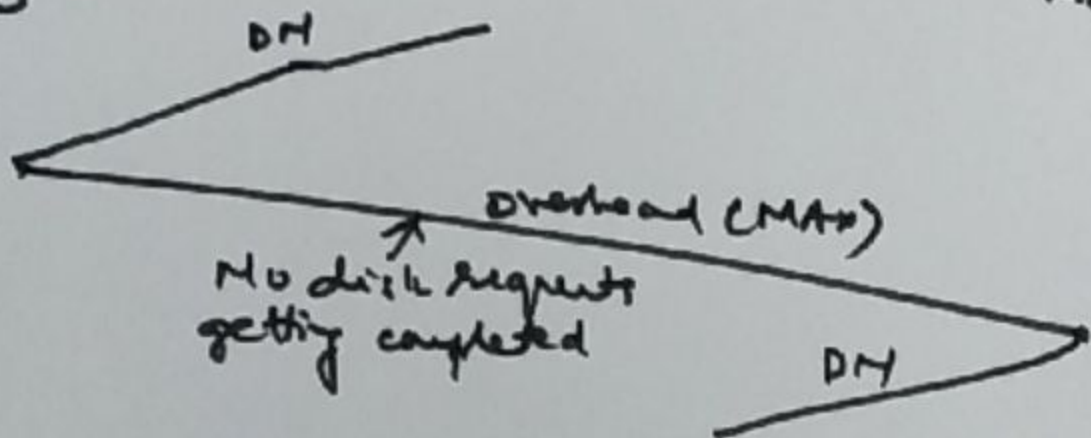 DN
Overhead (MAX)
No disk requests
getting completed
DN